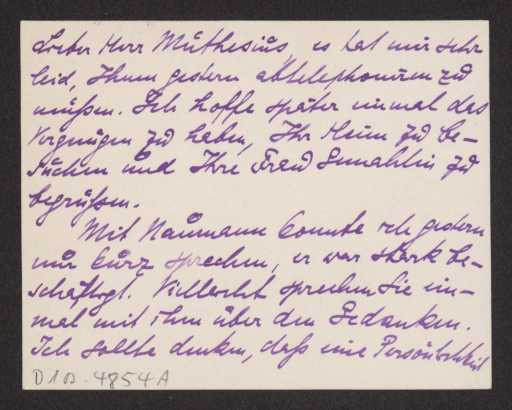 Lieber Herr Muthesius, es tat mir sehr
leid, Ihnen gestern abtelephonieren zu
müßen. Ich hoffe später einmal das
Vergnügen zu haben, Ihr Heim zu be-
suchen und Ihre Frau Gemahlin zu
begrüßen.
Mit Naumann konnte ich gestern
nur kurz sprechen, er war stark be-
schäftigt. Vielleicht sprechen Sie ein-
mal mit ihm über den Gedanken.
Ich sollte denken, daß eine Persönlichkeit
D 103-4854A